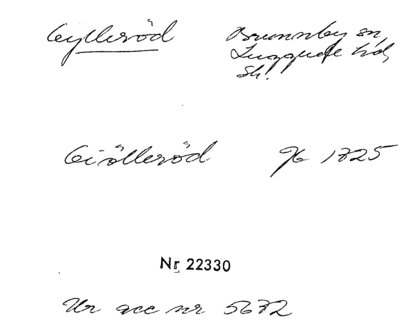 Gylleröd
Brunnby sn,
Luggude hd,
Sk.
Giölleröd
1725
Nr 22330
Ur acc nr 5672